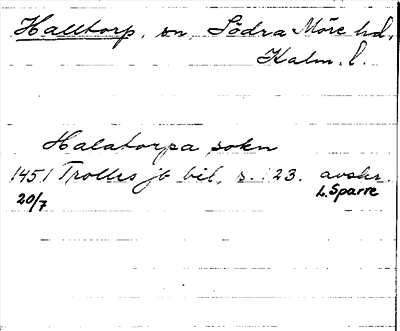 Halltorp, sn, Södra Möre hd,
Kalm. l.
Halatorpa sokn
1451 Trolles jb bil, s. 123. avskr.
20/7 L. Sparre